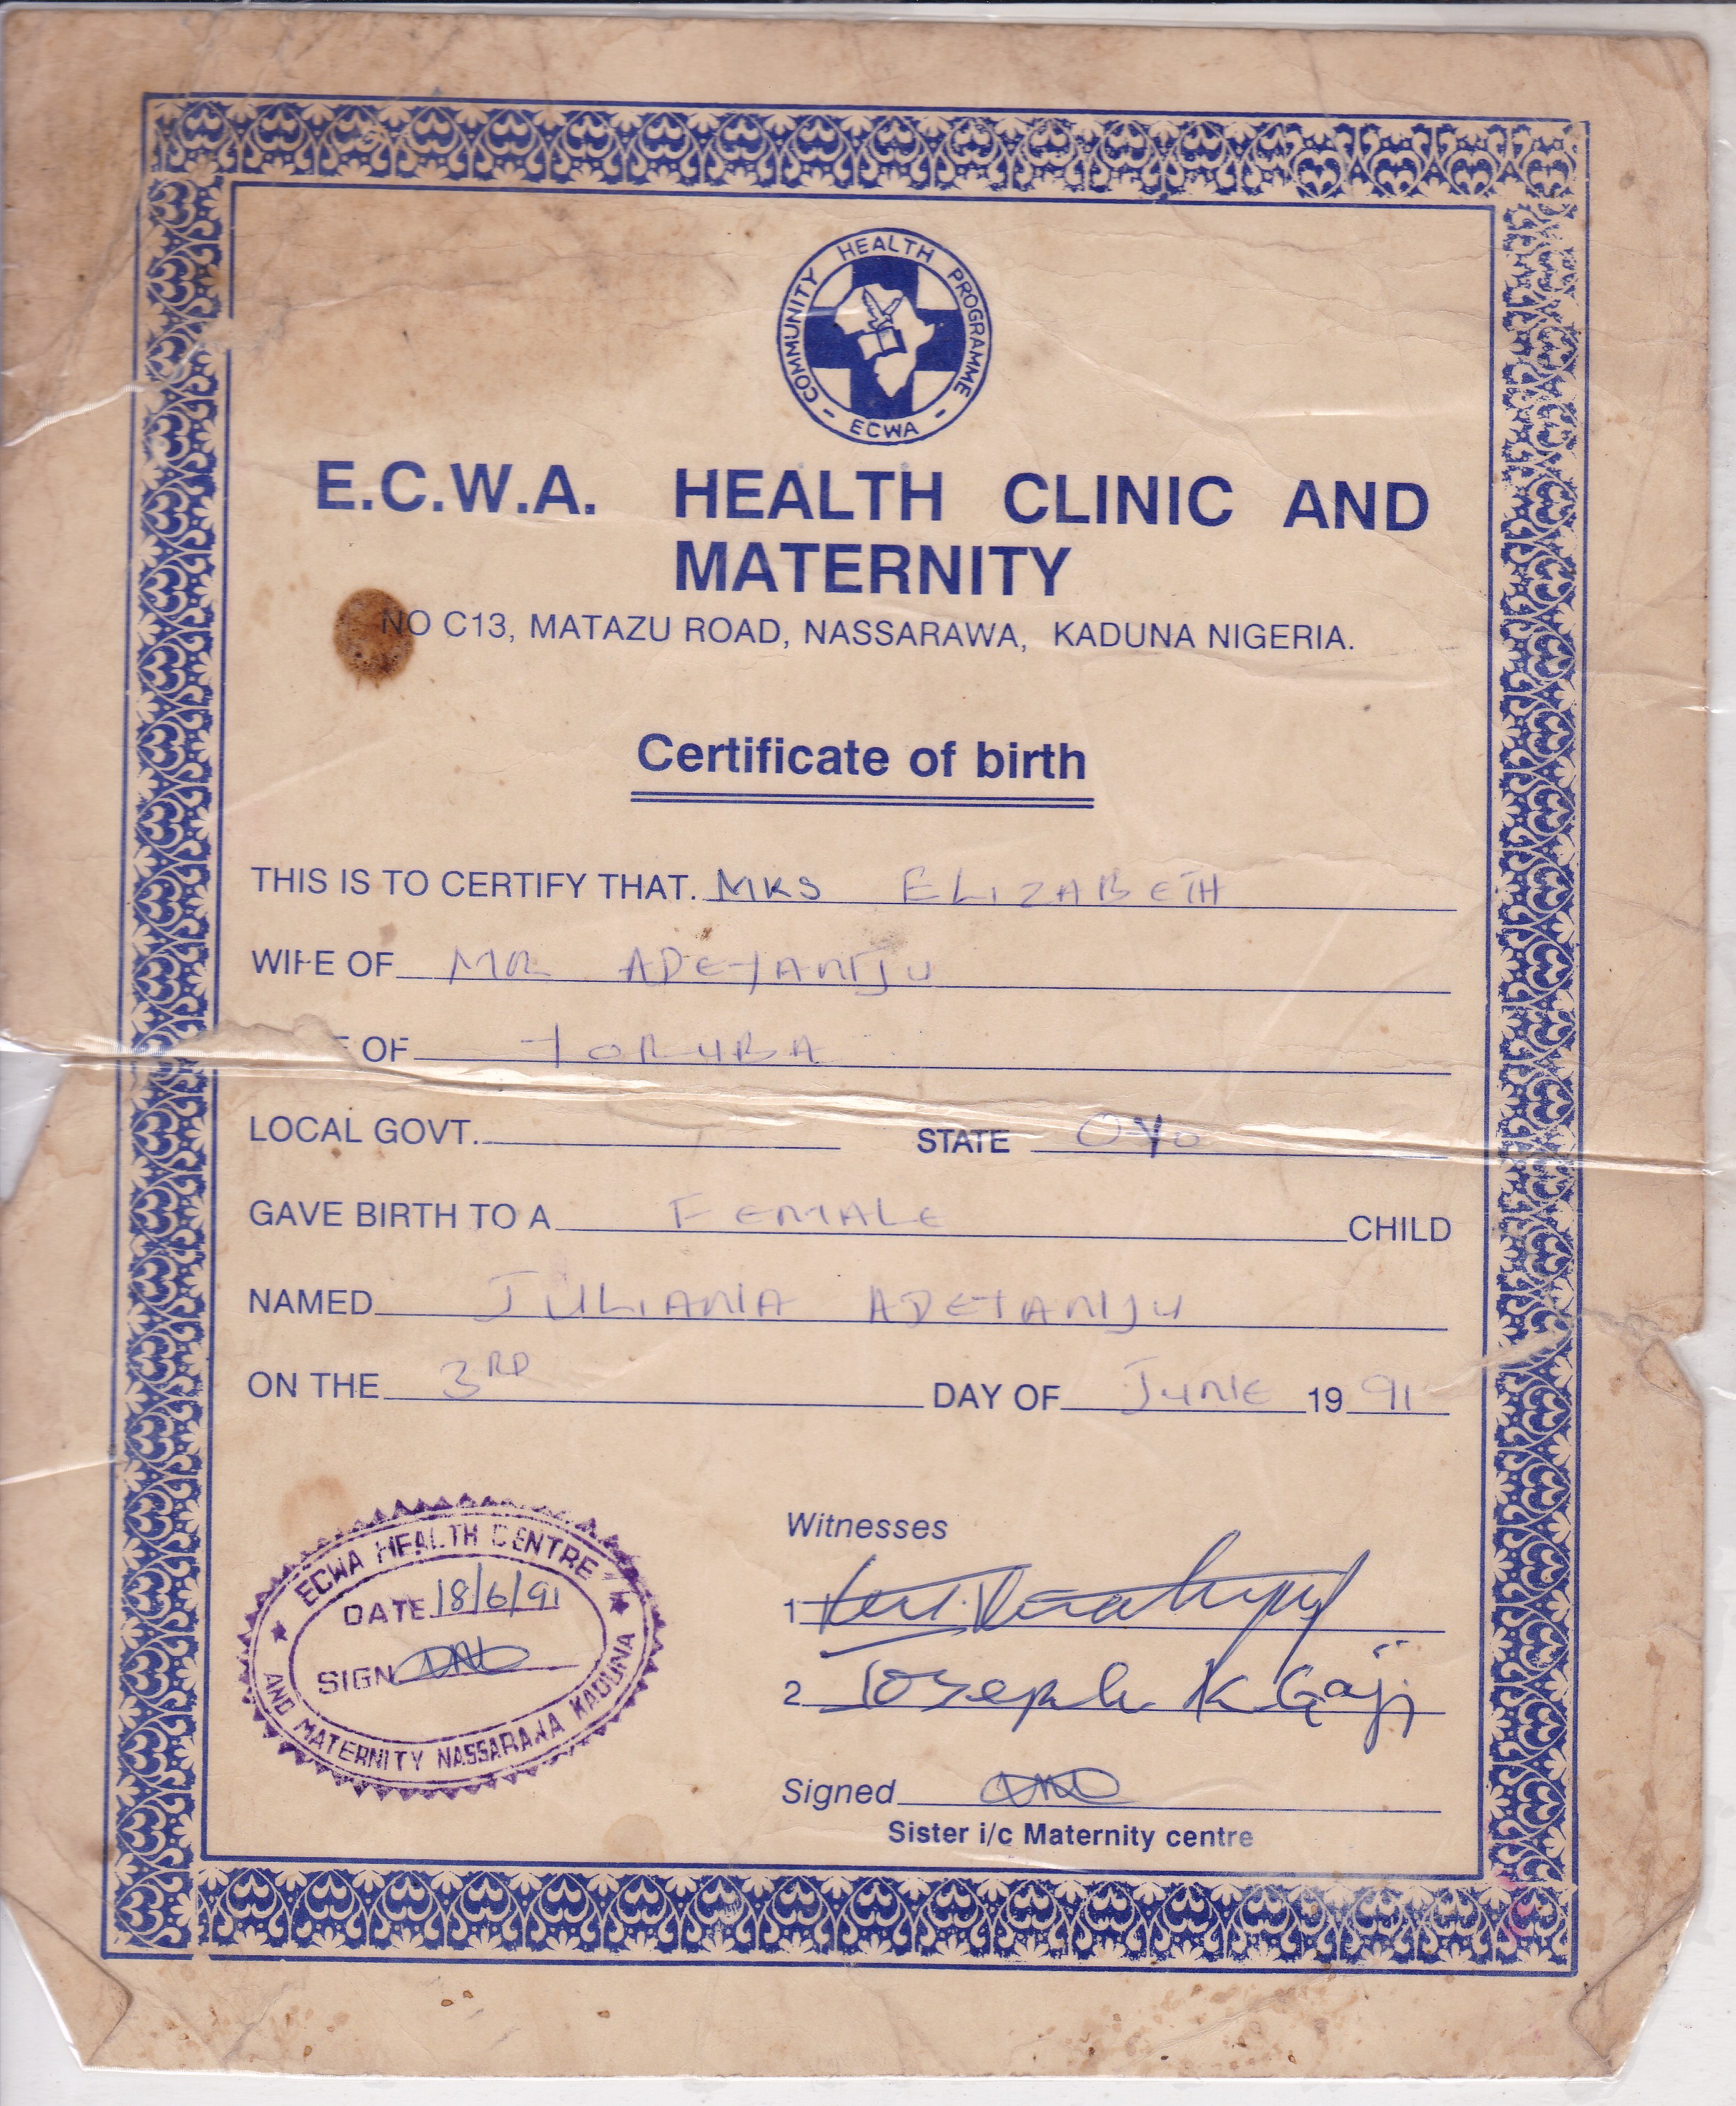 COMMUNITY HEALTH PROGRAMME
- ECWA -
E.C.W.A. HEALTH CLINIC AND
MATERNITY
NO C13, MATAZU ROAD, NASSARAWA, KADUNA NIGERIA.
Certificate of birth
THIS IS TO CERTIFY THAT. MRS ELIZABETH
WIFE OF MR ADEYANIJU
OF YORUBA
LOCAL GOVT. STATE OYO
GAVE BIRTH TO A FEMALE CHILD
NAMED JULIANA ADEYANIJU
ON THE 3RD DAY OF JUNE 19 91
ECWA HEALTH CENTRE
DATE 18/6/91
SIGN
AND MATERNITY NASSARAWA KADUNA
Witnesses
1
2 Joseph K Gaji
Signed
Sister i/c Maternity centre